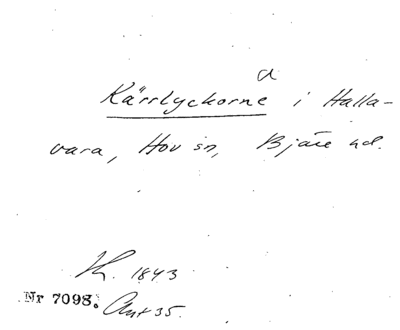 a
Kärrlyckorne i Halla-
vara, Hov sn, Bjäre hd.
1843
Nr 7098. Avt 35.